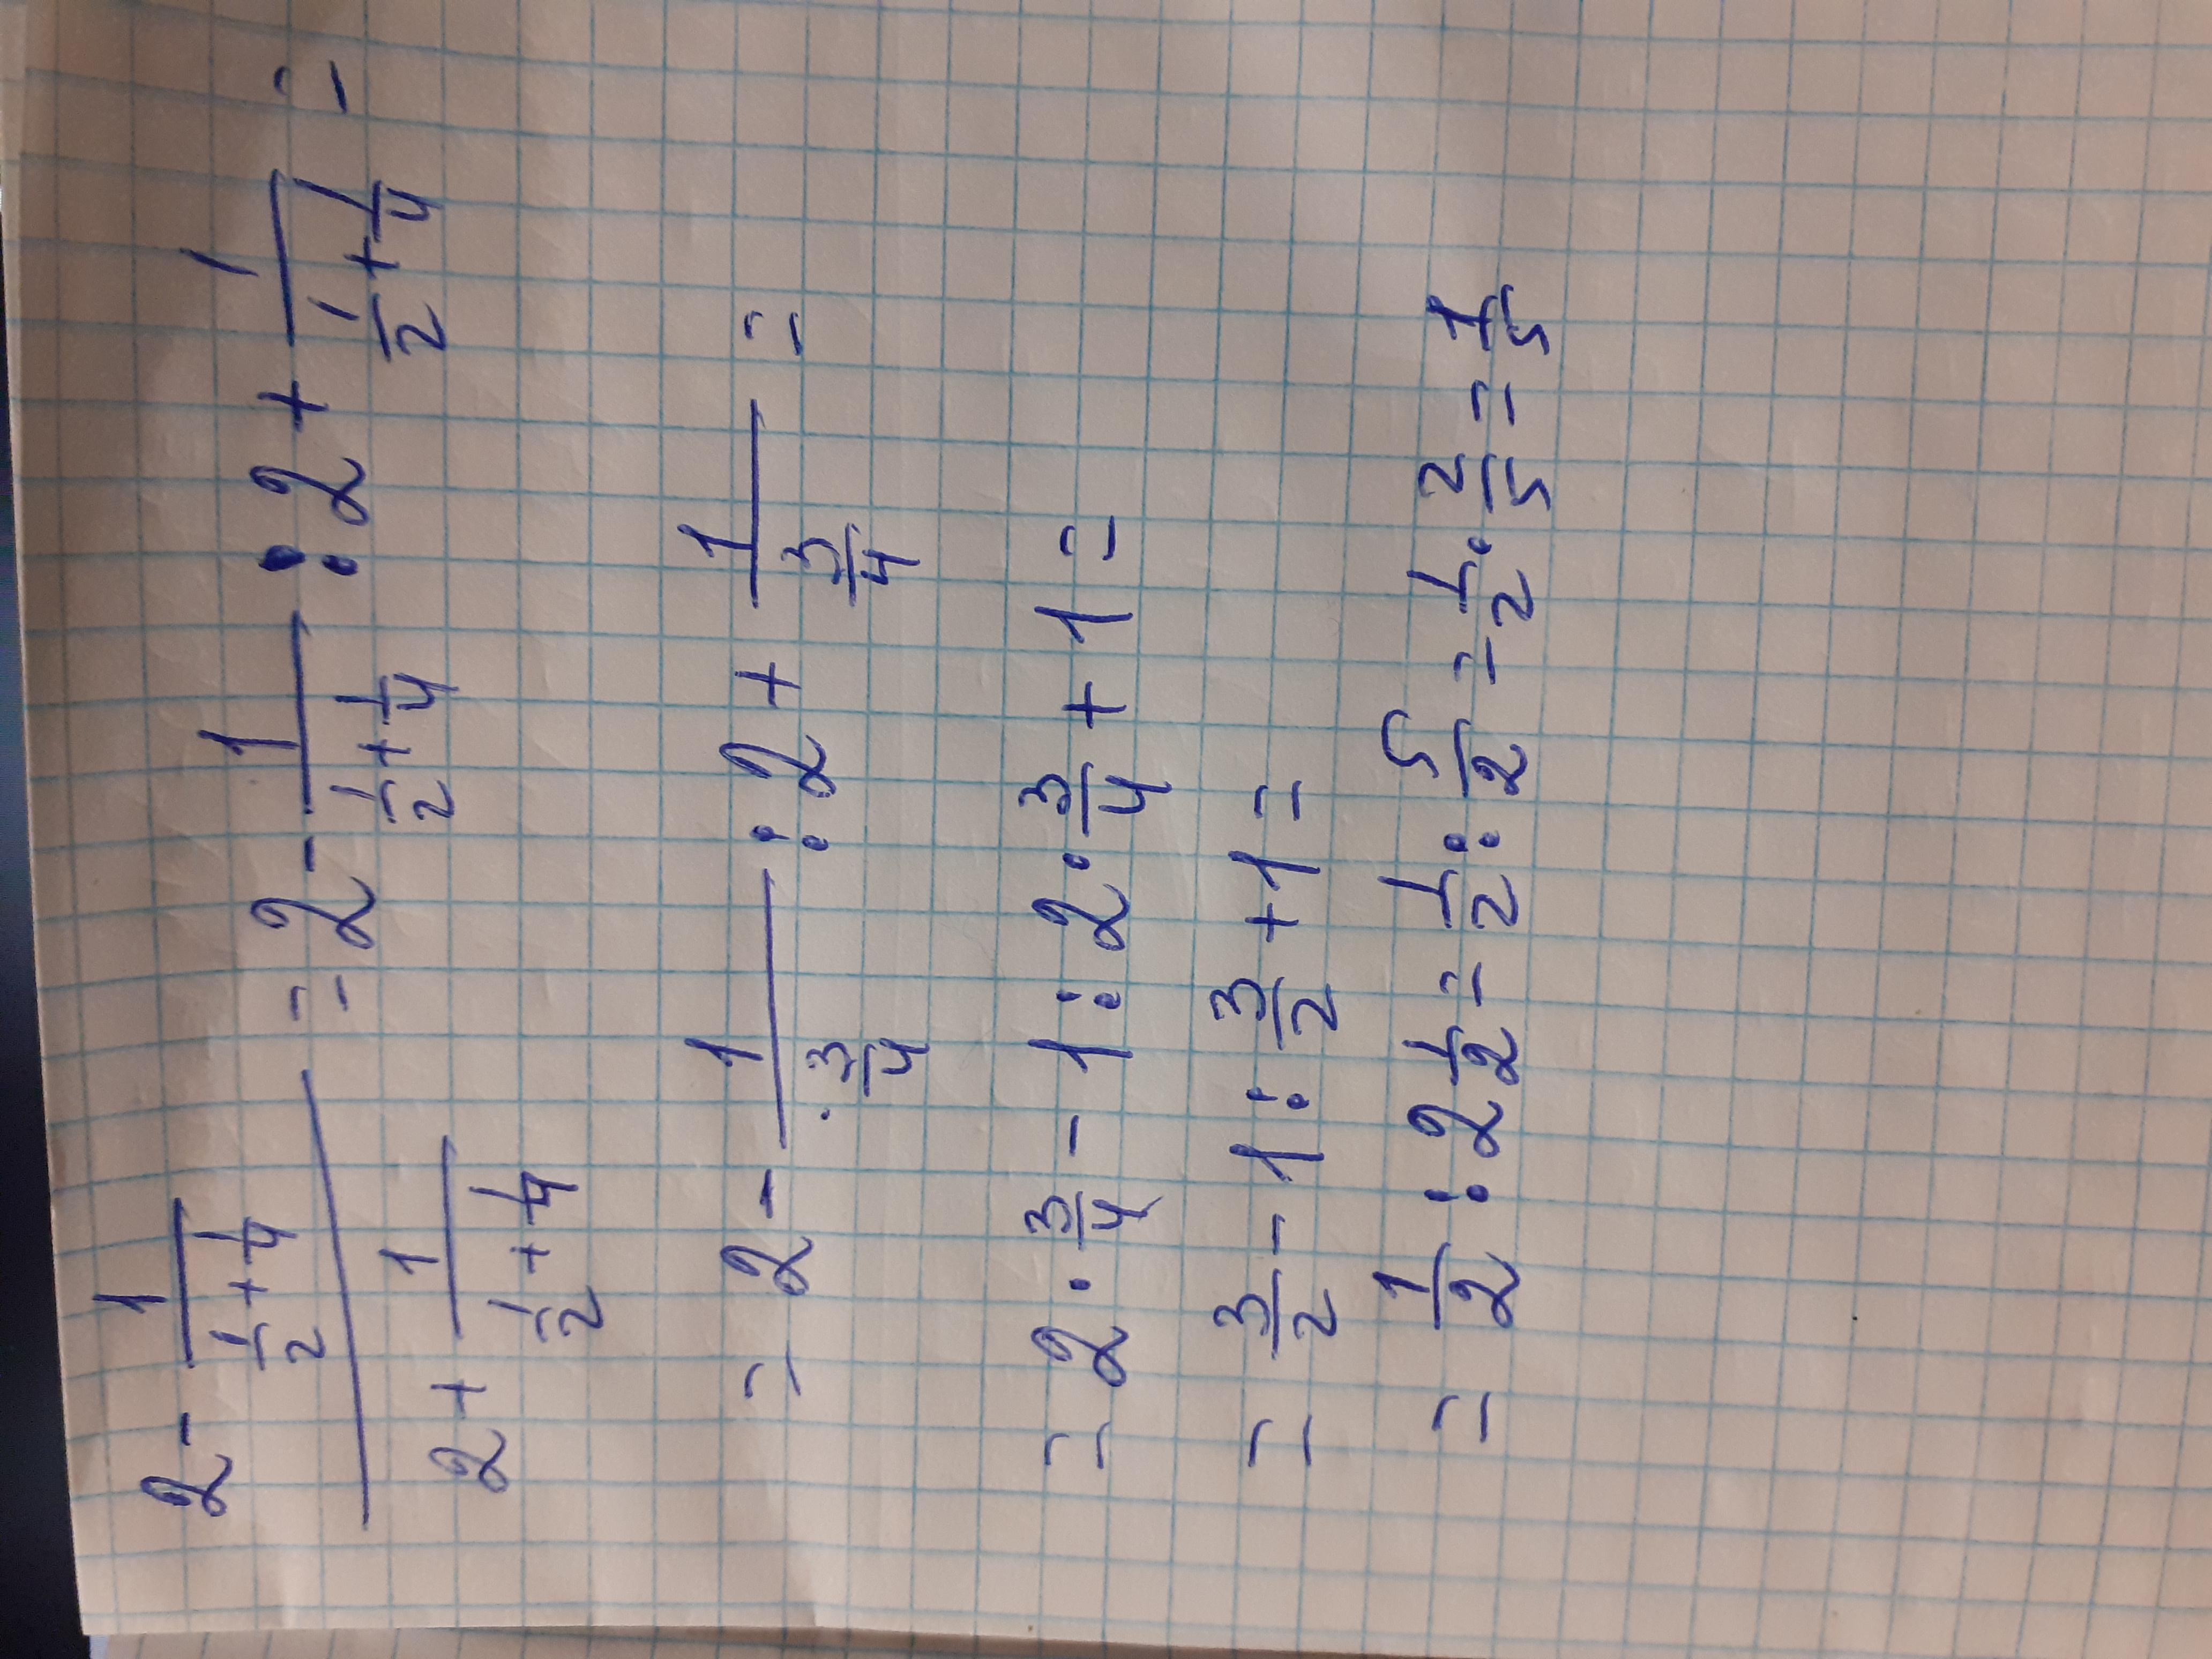 \frac{2 - \frac{1}{\frac{1}{2} + \frac{1}{4}}}{2 + \frac{1}{\frac{1}{2} + \frac{1}{4}}} = 2 - \frac{1}{\frac{1}{2} + \frac{1}{4}} : 2 + \frac{1}{\frac{1}{2} + \frac{1}{4}} =
= 2 - \frac{1}{\frac{3}{4}} : 2 + \frac{1}{\frac{3}{4}} =
= 2 \cdot \frac{3}{4} - 1 : 2 \cdot \frac{3}{4} + 1 =
= \frac{3}{2} - 1 : \frac{3}{2} + 1 =
= \frac{1}{2} : 2\frac{1}{2} = \frac{1}{2} : \frac{5}{2} = \frac{1}{2} \cdot \frac{2}{5} = \frac{1}{5}